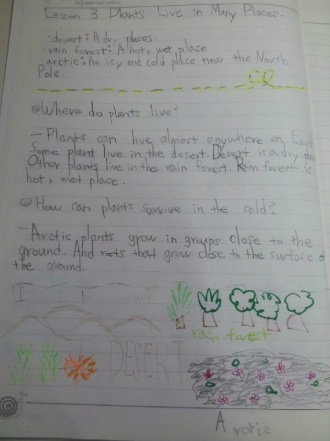 Lesson 3 Plants Live in Many Places.
·desert: A dry places
rain forest: A hot, wet place
arctic: An icy and cold place near the North
Pole.
Where do plants live?
- Plants can live almost anywhere on
Some plant live in the desert. Desert is a dry
Other plants live in the rain forest. Rain forest is
hot, wet place.
How can plants survive in the cold?
- Arctic plants grow in groups close to the
ground. And roots that grow close to the surface of
the ground.
rain forest
DESERT
Arctic